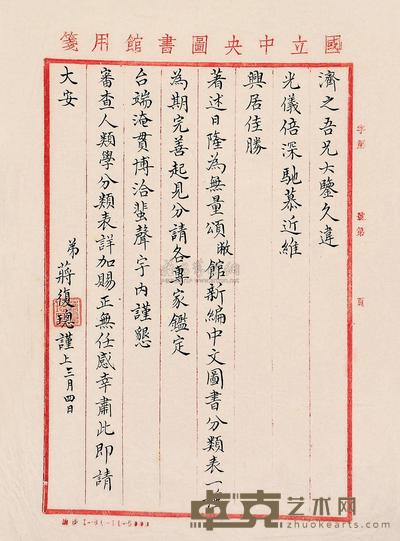 國立中央圖書館用箋
濟之吾兄大鑒久違
光儀倍深馳慕近維
興居佳勝
著述日隆為無量頌敝館新編中文圖書分類表一
為期完善起見分請各專家鑑定
台端淹貫博洽蜚聲宇內謹懇
審查人類學分類表詳加賜正無任感幸肅此即請
大安
弟蔣復璁謹上三月四日
字第 號第 頁
卓克艺术网
www.zhuokearts.com